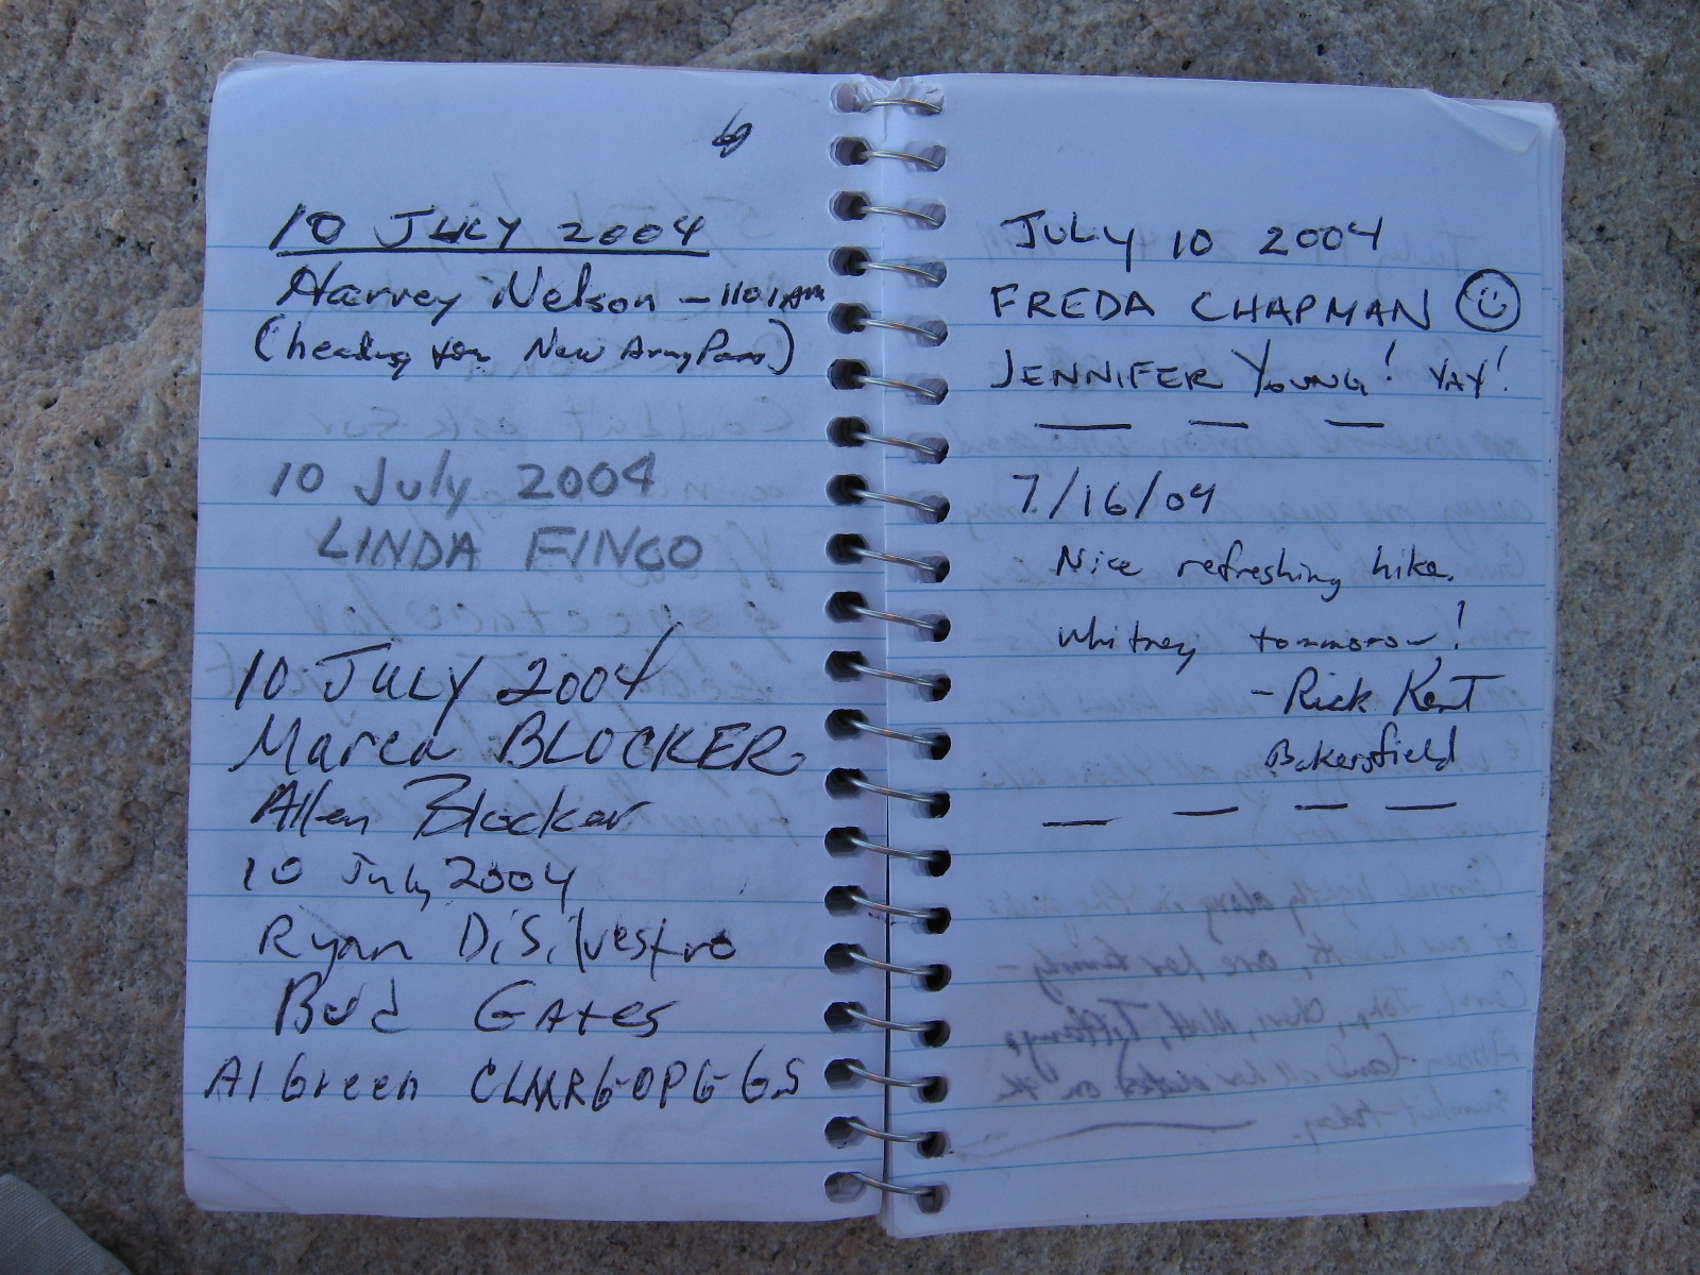 10 JULY 2004
Harvey Nelson - 1101AM
(heading for New Army Pass)
10 July 2004
LINDA FINGO
10 JULY 2004
Marea BLOCKER
Allen Blocker
10 July 2004
Ryan DiSilvestro
Bud Gates
Al Green CLMRG-OPG-GS
JULY 10 2004
FREDA CHAPMAN
JENNIFER YOUNG! YAY!
7/16/04
Nice refreshing hike.
Whitney tommorow!
- Rick Kent
Bakersfield